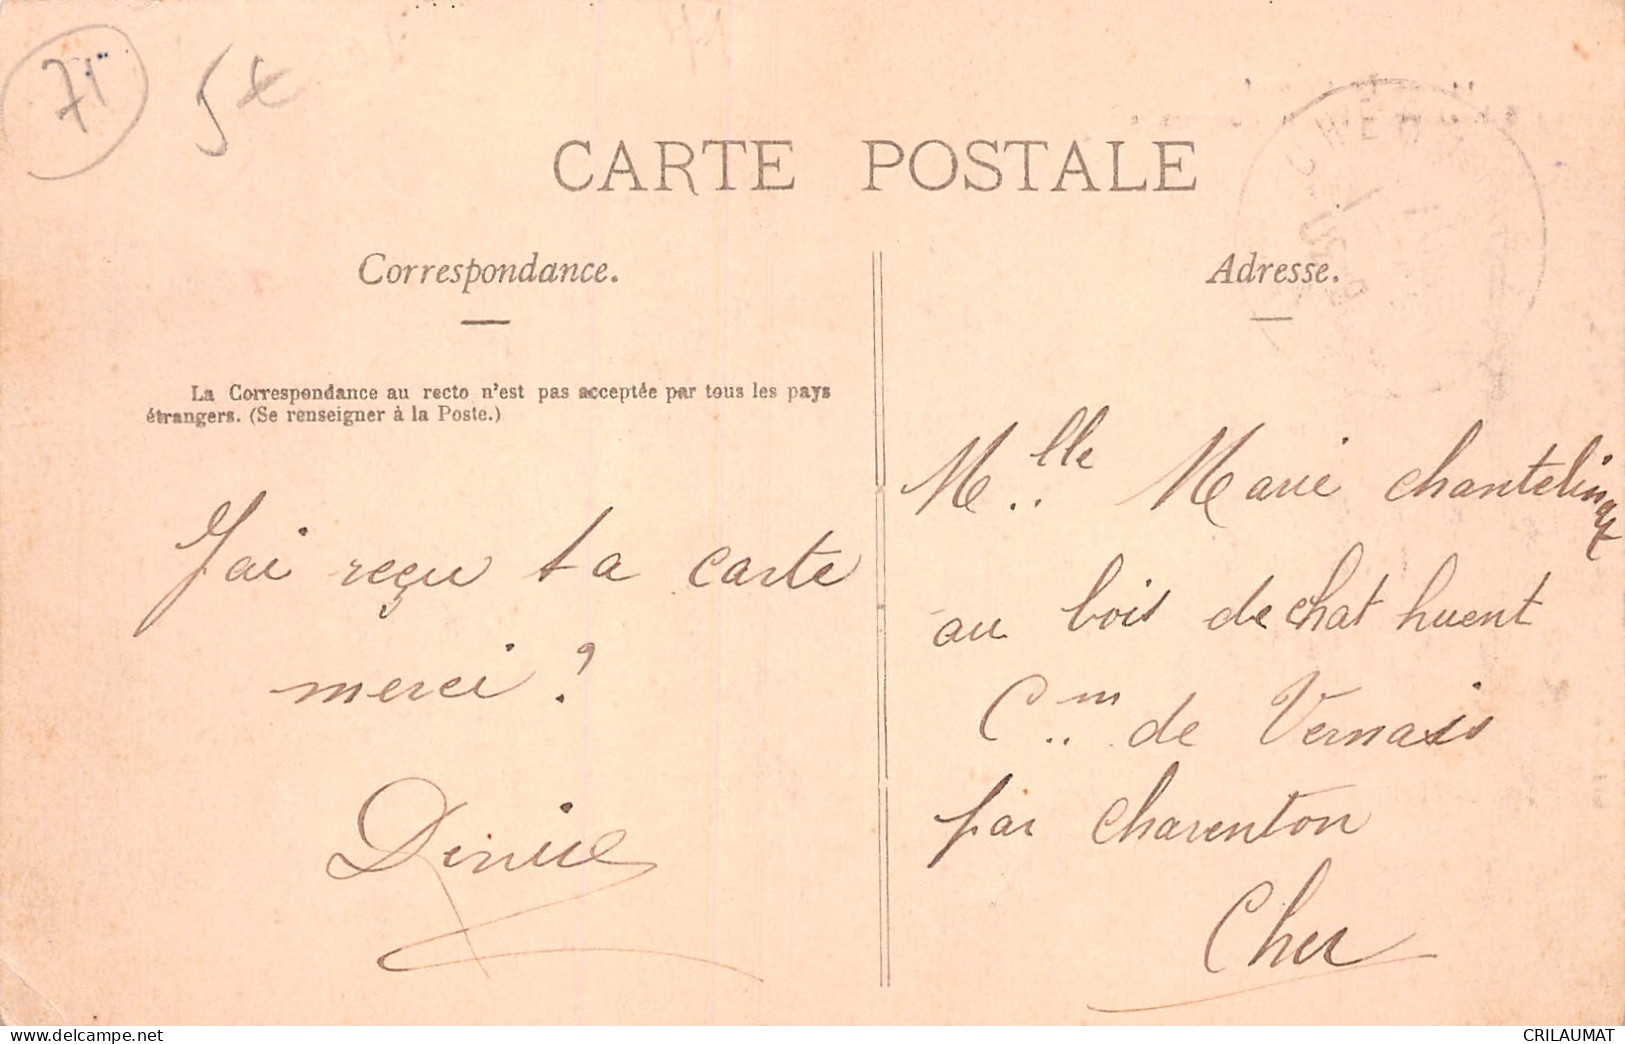 71
5€
CARTE POSTALE
Correspondance.
La Correspondance au recto n'est pas acceptée par tous les pays
étrangers. (Se renseigner à la Poste.)
J'ai reçu ta carte
merci ?
Denise
Adresse.
Mlle Marie chantelinqx
au bois de chat huent
Cm de Vernais
par charenton
Cher
delcampe.net
CRILAUMAT